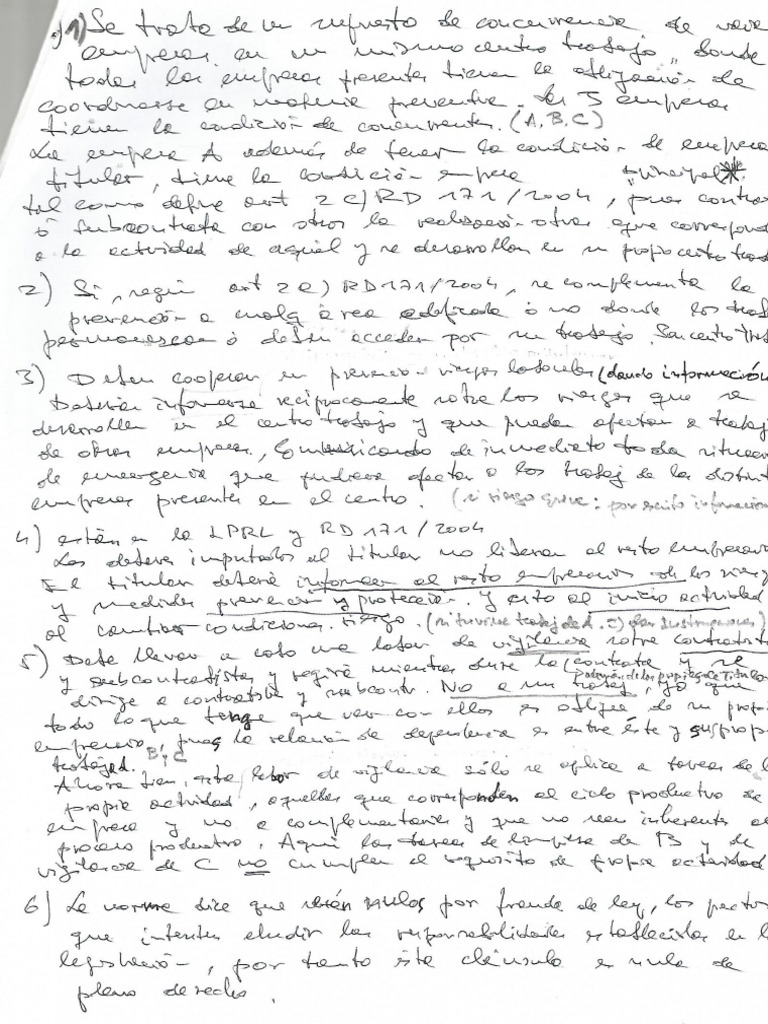 1) Se trata de un supuesto de concurrencia de
empresas en un mismo centro trabajo, donde
todas las empresas presentes tienen la obligación de
coordinarse en materia preventiva. Las 3 empresas
tienen la condición de concurrentes. (A, B, C)
La empresa A además de tener la condición de empresa
titular, tiene la condición empresa "principal" *
tal como define art 2 c) RD 171/2004, pues contra
ó subcontrata con otros la realización obras que correspond
a la actividad de aquel y se desarrollan en su propio centro trab
2) Si, según art 2 a) RD 171/2004, se complementa la
prevención a cualq área edificada ó no donde los trab
permanezcan ó deban acceder por su trabajo. San centro Trab
3) Deben cooperar en prevención riesgos laborales (dando información
Deberán informarse recíprocamente sobre los riesgos que se
desarrollen en el centro trabajo y que puedan afectar a trabaj
de otras empresas, Comunicando de inmediato toda situac
de emergencia que pudiera afectar a los trabaj de las distint
empresas presentes en el centro. (si riesgo grave: por escrito información
4) están en la LPRL y RD 171/2004
Los deberes imputados al titular no liberan al resto empresario
El titular deberá informar al resto empresarios de los riesg
y medidas prevención y protección. Y esto al inicio actividad
al cambiar condiciones riesgo. (si tuviese trabaj de A.
5) Debe llevar a cabo una labor de vigilancia sobre contratist
y subcontratistas y regirá mientras dure la contrata y se
dirige a contratista y subcontr. No a un trabaj, ya que
todo lo que tenga que ver con ellos es oblig de su propi
empresario, pues la relación de dependencia es entre éste y sus prop
trabajad. B y C
Ahora bien, esta labor de vigilancia sólo se aplica a tareas de la
propia actividad, aquellas que corresponden al ciclo productivo de
empresa y no a complementarias y que no sean inherentes al
proceso productivo. Aquí las tareas de limpieza de B y de
vigilancia de C no cumplen el requisito de propia actividad
6) La norma dice que serán nulos por fraude de ley, los pactos
que intenten eludir las responsabilidades establecidas en l
legislación, por tanto ésta cláusula es nula de
pleno derecho.